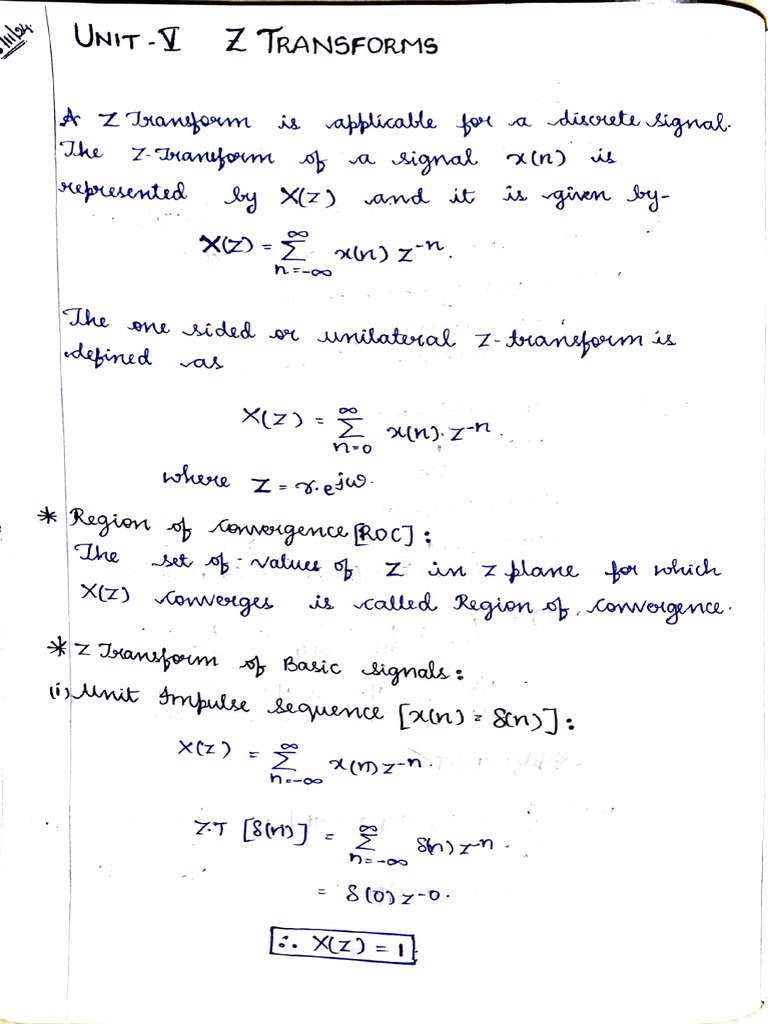 UNIT-V Z TRANSFORMS
A Z Transform is applicable for a discrete signal.
The Z-Transform of a signal x(n) is
represented by X(z) and it is given by-
X(z) = ∞∑n=-∞ x(n) z⁻ⁿ.
The one sided or unilateral Z-transform is
defined as
X(z) = ∞∑n=0 x(n). z⁻ⁿ.
where z = r.e^jω.
* Region of Convergence [ROC]:
The set of values of Z in z plane for which
X(z) converges is called Region of convergence.
* Z Transform of Basic signals:
(i) Unit Impulse sequence [x(n) = δ(n)]:
X(z) = ∞∑n=-∞ x(n) z⁻ⁿ.
Z.T [δ(n)] = ∞∑n=-∞ δ(n) z⁻ⁿ.
= δ(0) z⁻⁰.
∴ X(z) = 1